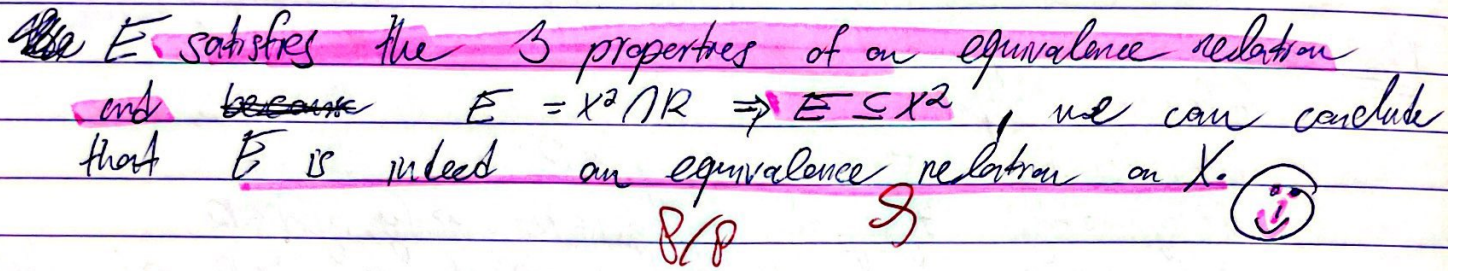 E satisfies the 3 properties of an equivalence relation
and because E = X² ∩ R ⇒ E ⊆ X², we can conclude
that E is indeed an equivalence relation on X.
8/8